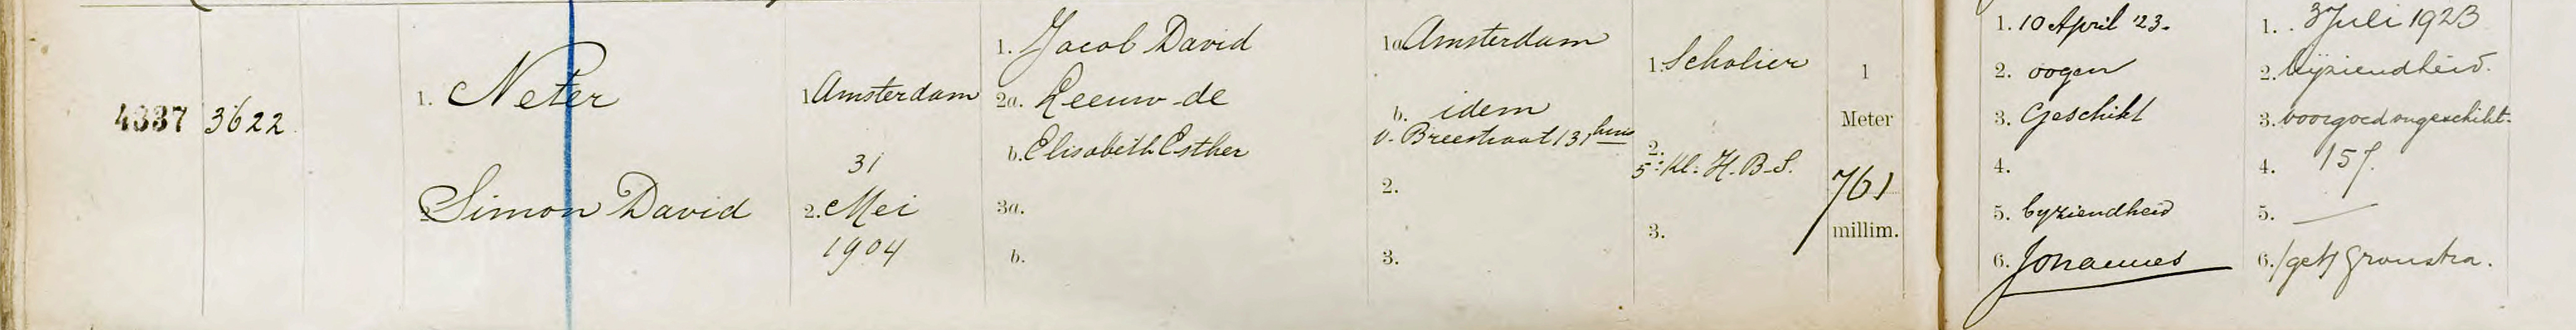 4337
3622
1. Neter
2 Simon David
1 Amsterdam
31
2. Mei
1904
1. Jacob David
2a. Leeuw-de
b. Elisabeth Esther
3a.
b.
1a Amsterdam
b. idem
v. Breestraat 131 huis
2.
3.
1. Scholier
2.
5e Kl. H.B.S.
3.
1
Meter
761
millim.
1. 10 April '23.
2. oogen
3. Geschikt
4.
5. byziendheid
6. Johannes
1. 3 Juli 1923
2. byziendheid.
3. voorgoed ongeschikt.
4. 157.
5. —
6. /get/ Gronstra.